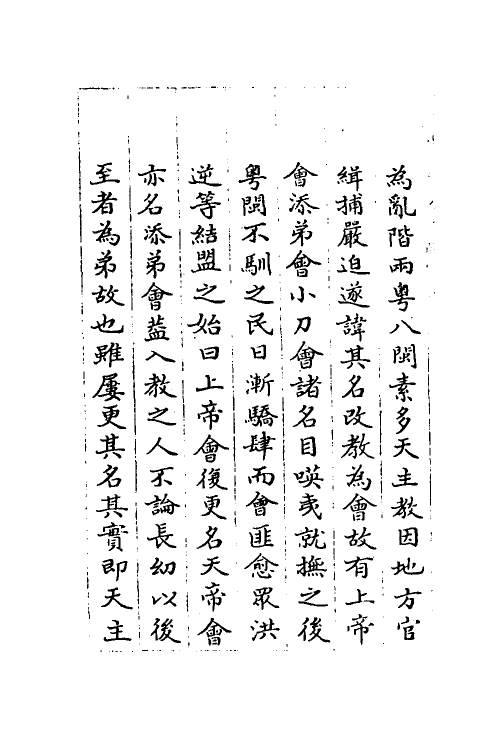 為亂階兩粵八閩素多天主教因地方官
緝捕嚴迫遂諱其名改教為會故有上帝
會添弟會小刀會諸名目㗸夷就撫之後
粵閩不馴之民日漸驕肆而會匪愈眾洪
逆等結盟之始曰上帝會復更名天帝會
亦名添弟會葢入教之人不論長幼以後
至者為弟故也雖屢更其名其實即天主